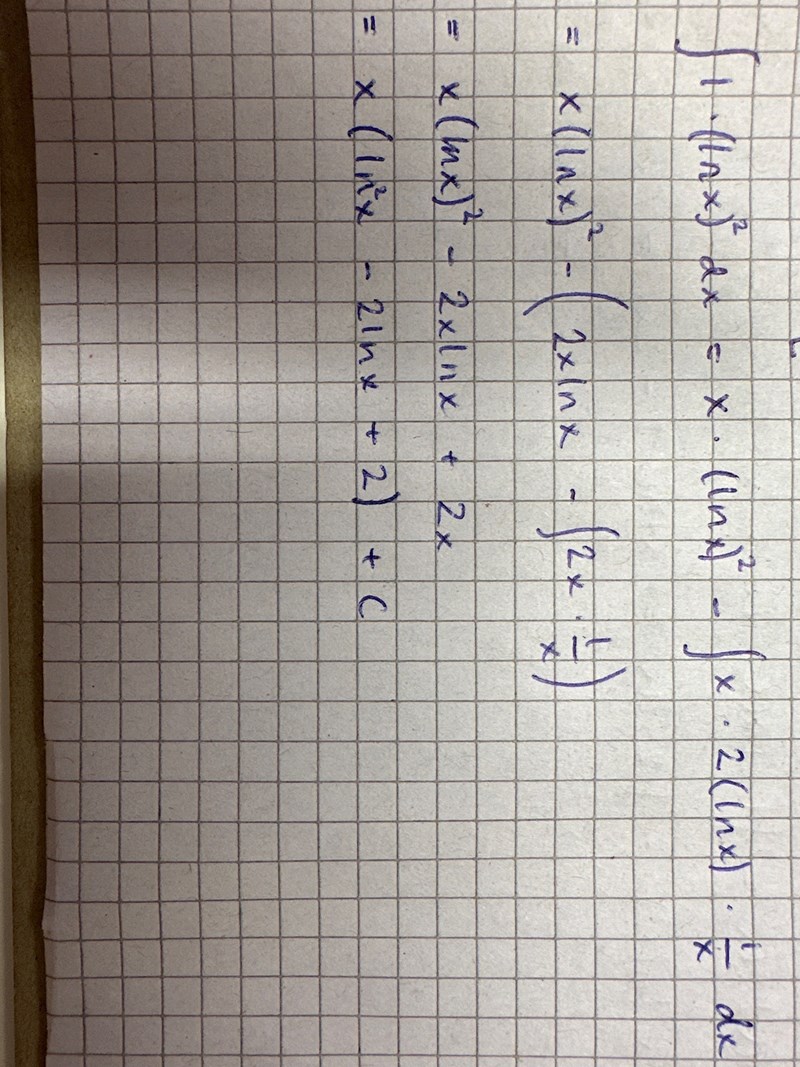 ∫ 1 · (ln x)² dx = x · (ln x)² - ∫ x · 2(ln x) · 1/x dx
= x(ln x)² - (2x ln x - ∫ 2x · 1/x)
= x(ln x)² - 2x ln x + 2x
= x(ln²x - 2 ln x + 2) + C